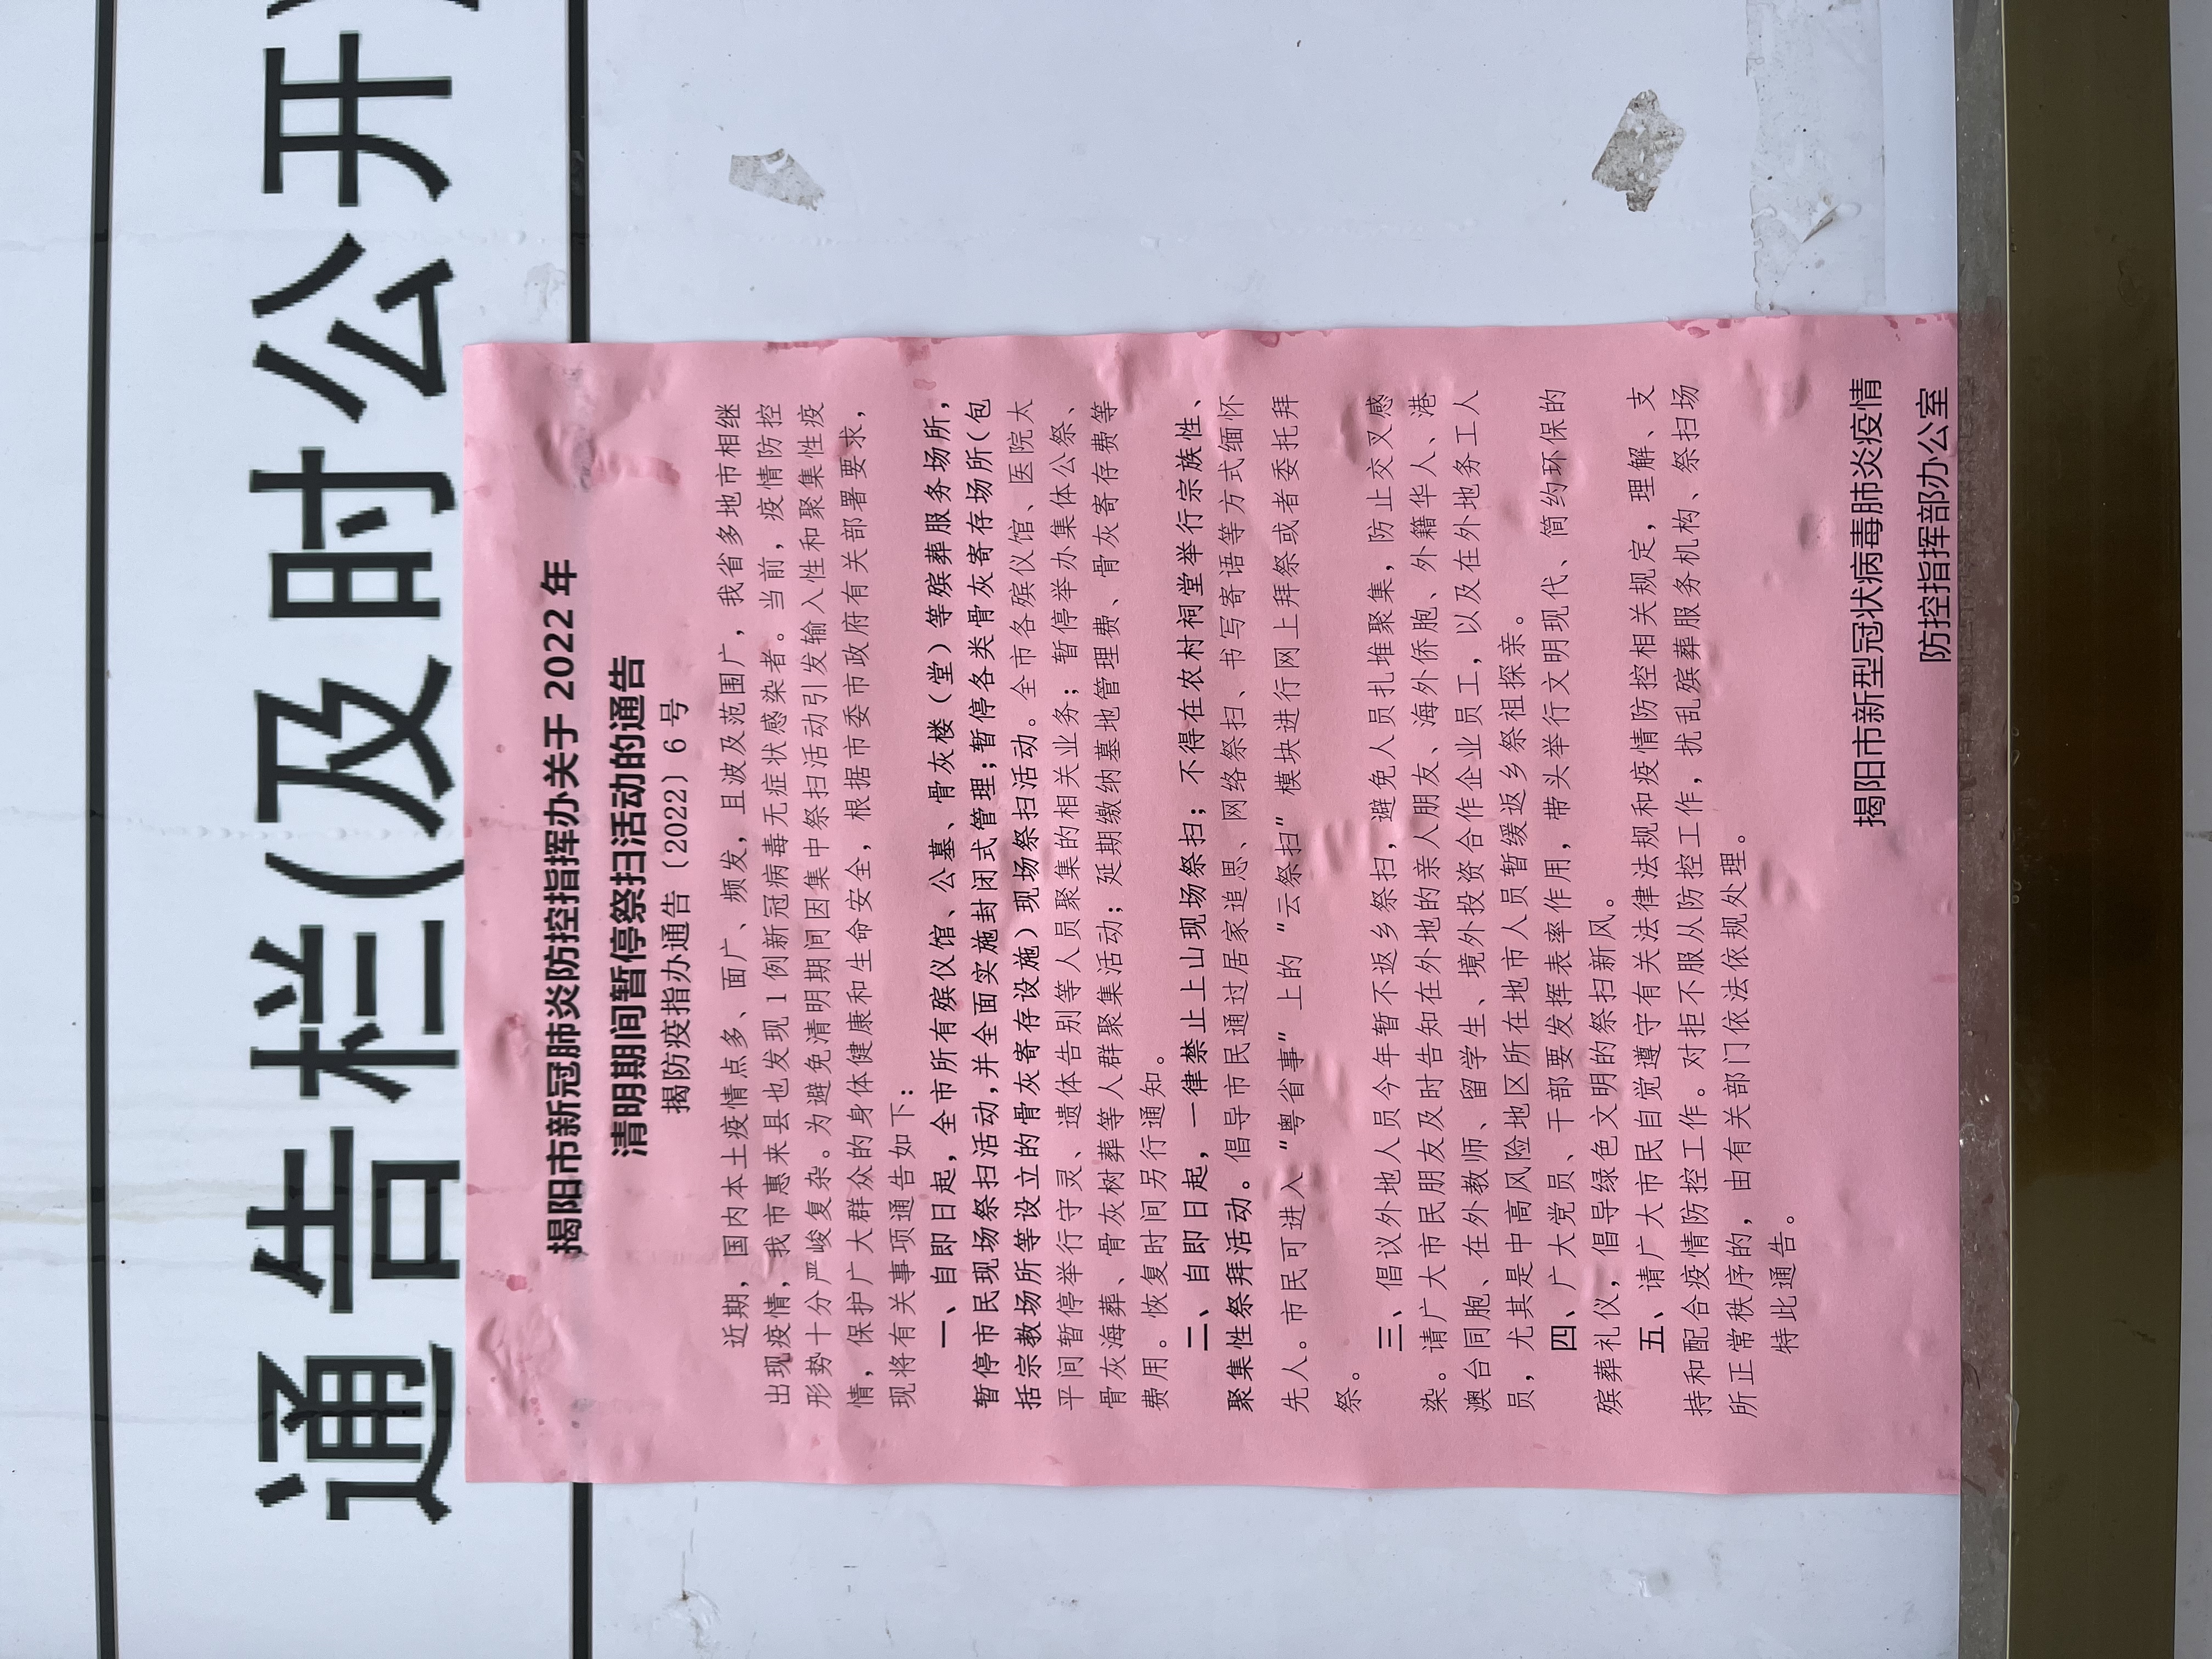 通告栏(及时公开)
揭阳市新冠肺炎防控指挥办关于 2022 年
清明期间暂停祭扫活动的通告
揭防疫指办通告〔2022〕6 号
近期，国内本土疫情点多、面广、频发，且波及范围广，我省多地市相继
出现疫情，我市惠来县也发现 1 例新冠病毒无症状感染者。当前，疫情防控
形势十分严峻复杂。为避免清明期间因集中祭扫活动引发输入性和聚集性疫
情，保护广大群众的身体健康和生命安全，根据市委市政府有关部署要求，
现将有关事项通告如下：
一、自即日起，全市所有殡仪馆、公墓、骨灰楼（堂）等殡葬服务场所，
暂停市民现场祭扫活动,并全面实施封闭式管理;暂停各类骨灰寄存场所(包
括宗教场所等设立的骨灰寄存设施）现场祭扫活动。全市各殡仪馆、医院太
平间暂停举行守灵、遗体告别等人员聚集的相关业务；暂停举办集体公祭、
骨灰海葬、骨灰树葬等人群聚集活动；延期缴纳墓地管理费、骨灰寄存费等
费用。恢复时间另行通知。
二、自即日起，一律禁止上山现场祭扫；不得在农村祠堂举行宗族性、
聚集性祭拜活动。倡导市民通过居家追思、网络祭扫、书写寄语等方式缅怀
先人。市民可进入“粤省事”上的“云祭扫”模块进行网上拜祭或者委托拜
祭。
三、倡议外地人员今年暂不返乡祭扫，避免人员扎堆聚集，防止交叉感
染。请广大市民朋友及时告知在外地的亲人朋友、海外侨胞、外籍华人、港
澳台同胞、在外教师、留学生、境外投资合作企业员工，以及在外地务工人
员，尤其是中高风险地区所在地市人员暂缓返乡祭祖探亲。
四、广大党员、干部要发挥表率作用，带头举行文明现代、简约环保的
殡葬礼仪，倡导绿色文明的祭扫新风。
五、请广大市民自觉遵守有关法律法规和疫情防控相关规定，理解、支
持和配合疫情防控工作。对拒不服从防控工作，扰乱殡葬服务机构、祭扫场
所正常秩序的，由有关部门依法依规处理。
特此通告。
揭阳市新型冠状病毒肺炎疫情
防控指挥部办公室